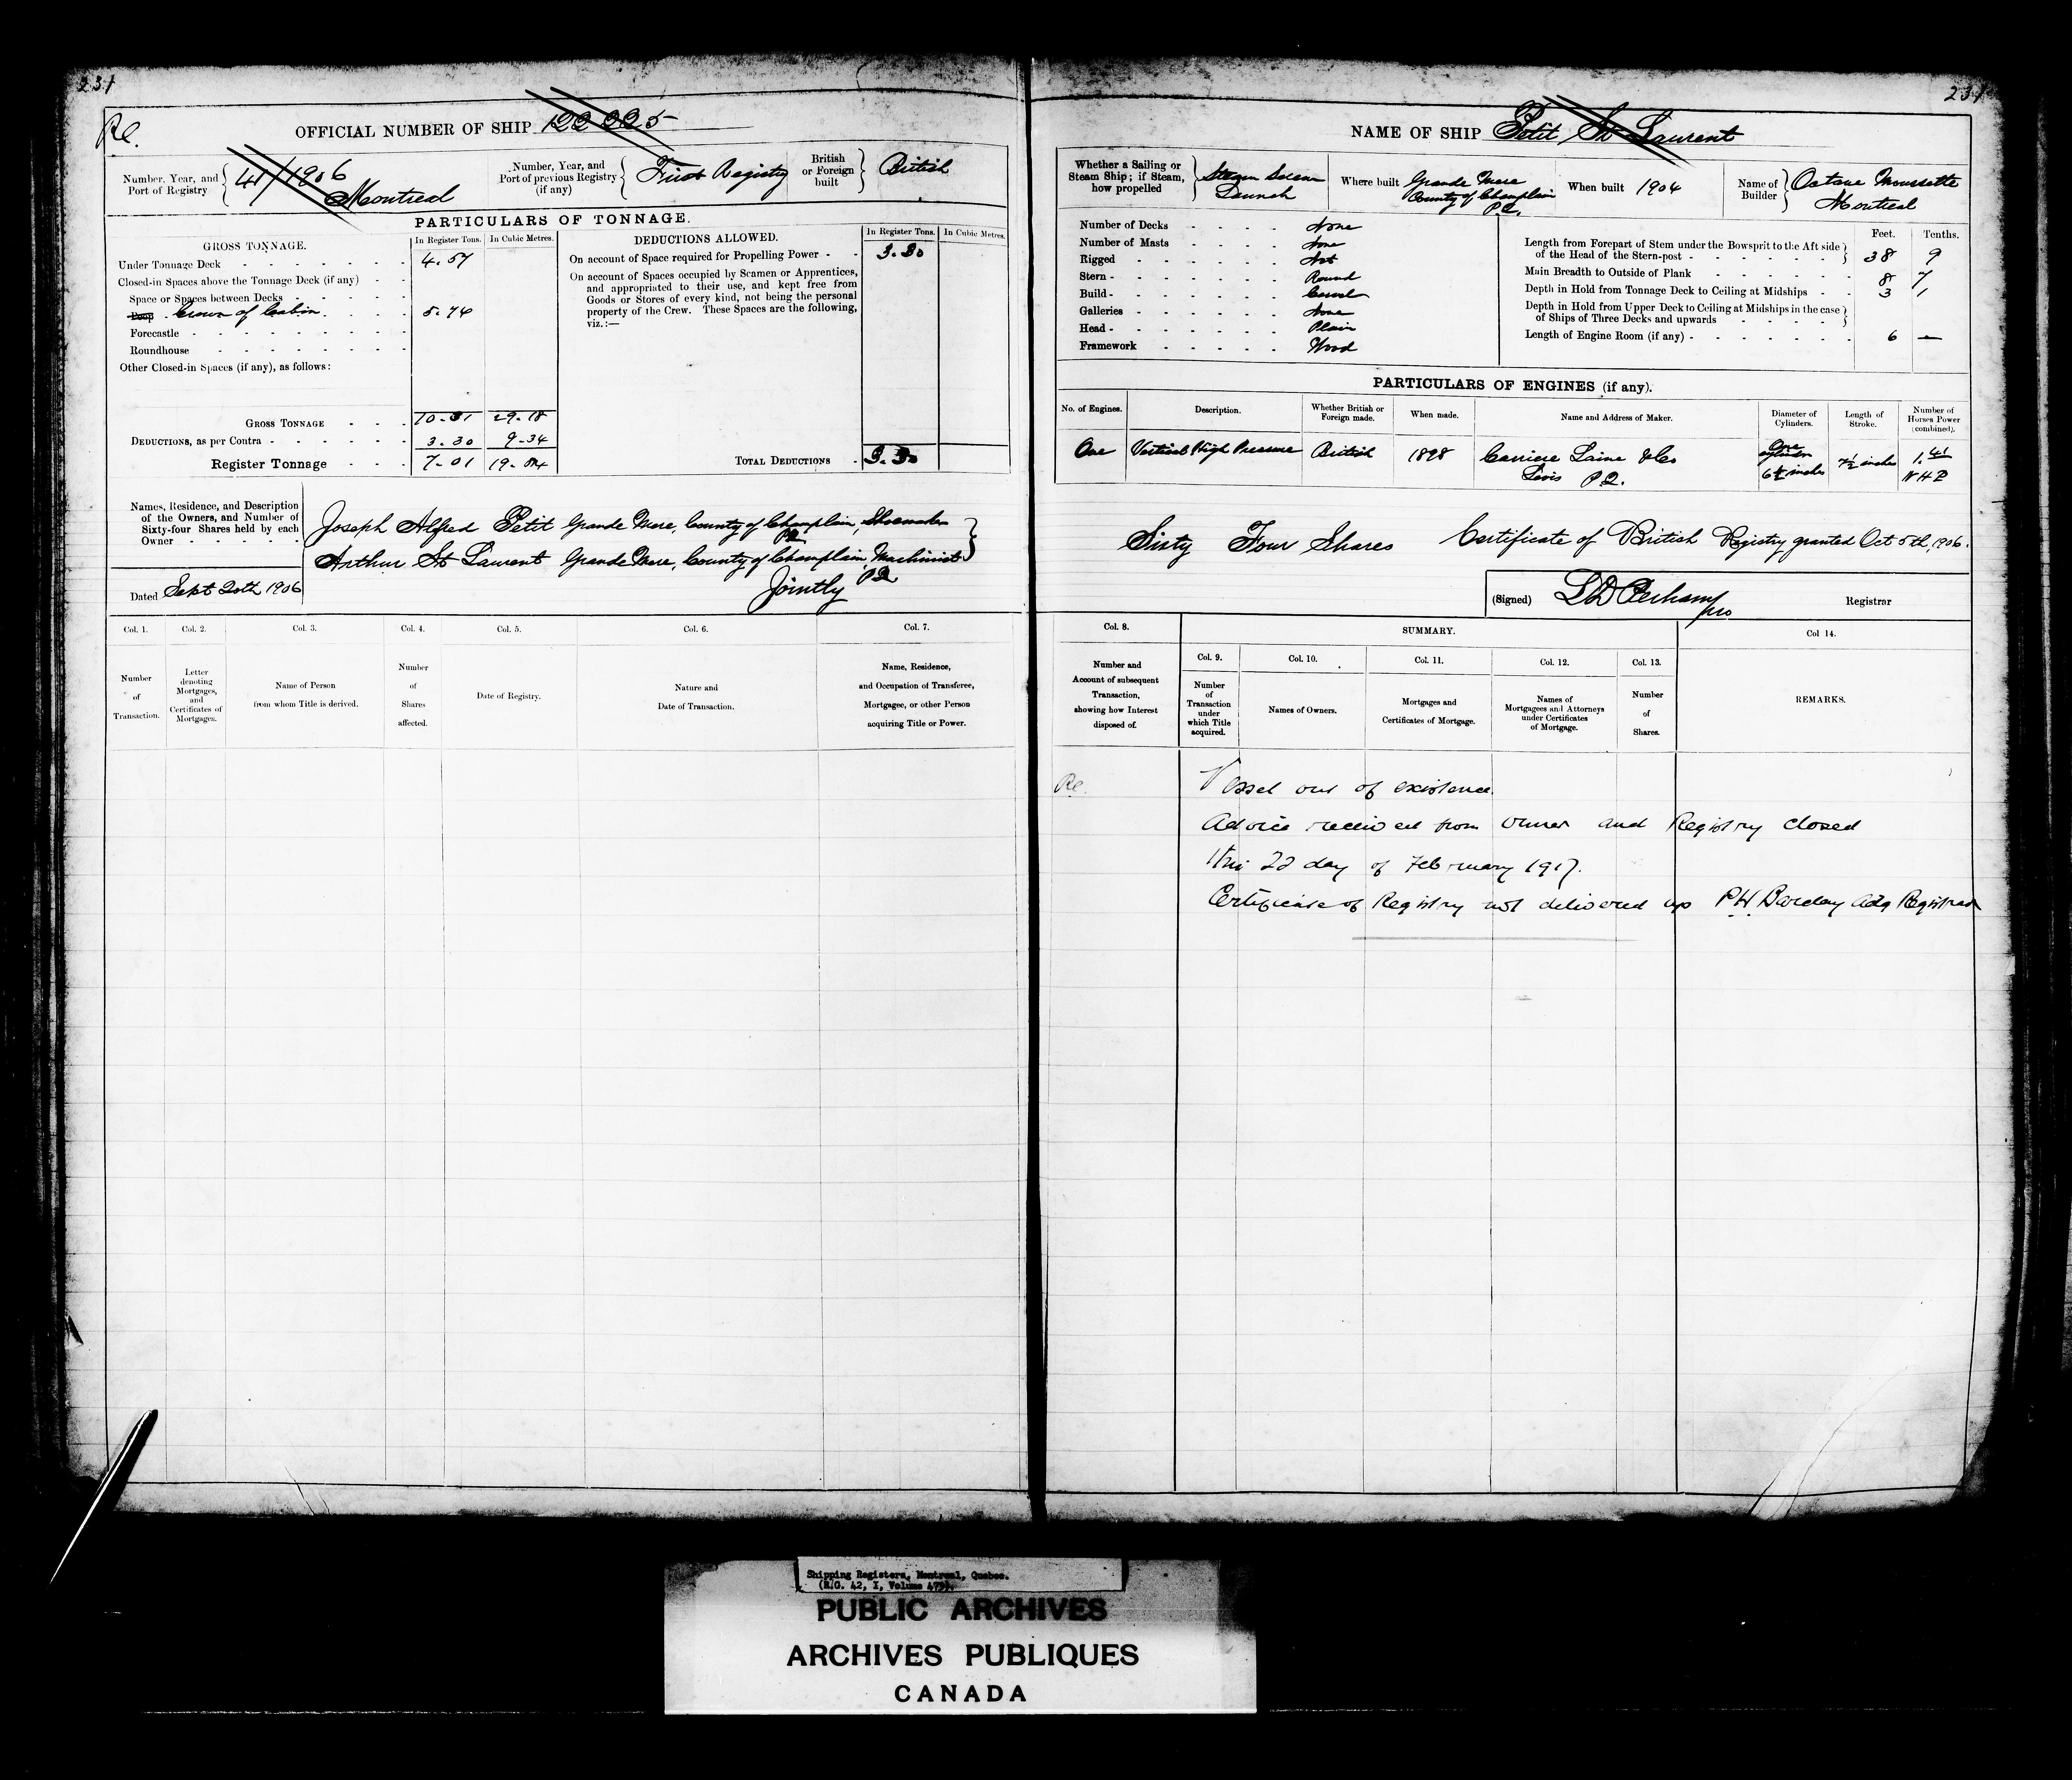 231
Rl.
OFFICIAL NUMBER OF SHIP 122225
Number, Year, and Port of Registry 41/1906 Montreal
Number, Year, and Port of previous Registry (if any) First Registry
British or Foreign built British
PARTICULARS OF TONNAGE.
GROSS TONNAGE. In Register Tons. In Cubic Metres.
Under Tonnage Deck 4.57
Closed-in Spaces above the Tonnage Deck (if any)
Space or Spaces between Decks
Poop Crown of Cabin. 5.74
Forecastle
Roundhouse
Other Closed-in Spaces (if any), as follows:
GROSS TONNAGE 10.31 29.18
DEDUCTIONS, as per Contra 3.30 9.34
Register Tonnage 7.01 19.84
DEDUCTIONS ALLOWED. In Register Tons. In Cubic Metres.
On account of Space required for Propelling Power 3.30
On account of Spaces occupied by Seamen or Apprentices,
and appropriated to their use, and kept free from
Goods or Stores of every kind, not being the personal
property of the Crew. These Spaces are the following,
viz.:—
TOTAL DEDUCTIONS 3.30
Names, Residence, and Description
of the Owners, and Number of
Sixty-four Shares held by each
Owner
Joseph Alfred Petit Grande Mere, County of Champlain, Shoemaker
P.Q.
Arthur St Laurent Grande Mere, County of Champlain, Machinist
P.Q.
Jointly
Dated Sept 20th 1906
Col. 1. Col. 2. Col. 3. Col. 4. Col. 5. Col. 6. Col. 7.
Number of Transaction.
Letter denoting Mortgages, and Certificates of Mortgages.
Name of Person from whom Title is derived.
Number of Shares affected.
Date of Registry.
Nature and Date of Transaction.
Name, Residence, and Occupation of Transferee, Mortgagee, or other Person acquiring Title or Power.
231
NAME OF SHIP Petit St Laurent
Whether a Sailing or Steam Ship; if Steam, how propelled Steam Screw Launch
Where built Grande Mere County of Champlain P.Q.
When built 1904
Name of Builder Octave Moussette Montreal
Number of Decks None
Number of Masts None
Rigged Not
Stern Round
Build Carvel
Galleries None
Head Plain
Framework Wood
Feet. Tenths.
Length from Forepart of Stem under the Bowsprit to the Aft side
of the Head of the Stern-post 38 9
Main Breadth to Outside of Plank 8 7
Depth in Hold from Tonnage Deck to Ceiling at Midships 3 1
Depth in Hold from Upper Deck to Ceiling at Midships in the case
of Ships of Three Decks and upwards
Length of Engine Room (if any) 6 —
PARTICULARS OF ENGINES (if any).
No. of Engines. Description. Whether British or Foreign made. When made. Name and Address of Maker. Diameter of Cylinders. Length of Stroke. Number of Horses Power (combined).
One Vertical High Pressure British 1898 Carriere Laine & Co Levis P.Q. One cylinder inches 7½ inches 1.41 N H P
Sixty Four Shares Certificate of British Registry granted Oct 5th, 1906.
(Signed) Registrar
Col. 8. SUMMARY. Col 14.
Col. 9. Col. 10. Col. 11. Col. 12. Col. 13.
Number and Account of subsequent Transaction, showing how Interest disposed of.
Number of Transaction under which Title acquired.
Names of Owners.
Mortgages and Certificates of Mortgage.
Names of Mortgagees and Attorneys under Certificates of Mortgage.
Number of Shares.
REMARKS.
Rl.
Vessel out of existence.
Advice received from owner and Registry closed
this 22 day of February 1917.
Certificate of Registry not delivered up P.H. Barclay Adg Registrar
Shipping Registers, Montreal, Quebec.
(R.G. 42, I, Volume 479).
PUBLIC ARCHIVES
ARCHIVES PUBLIQUES
CANADA